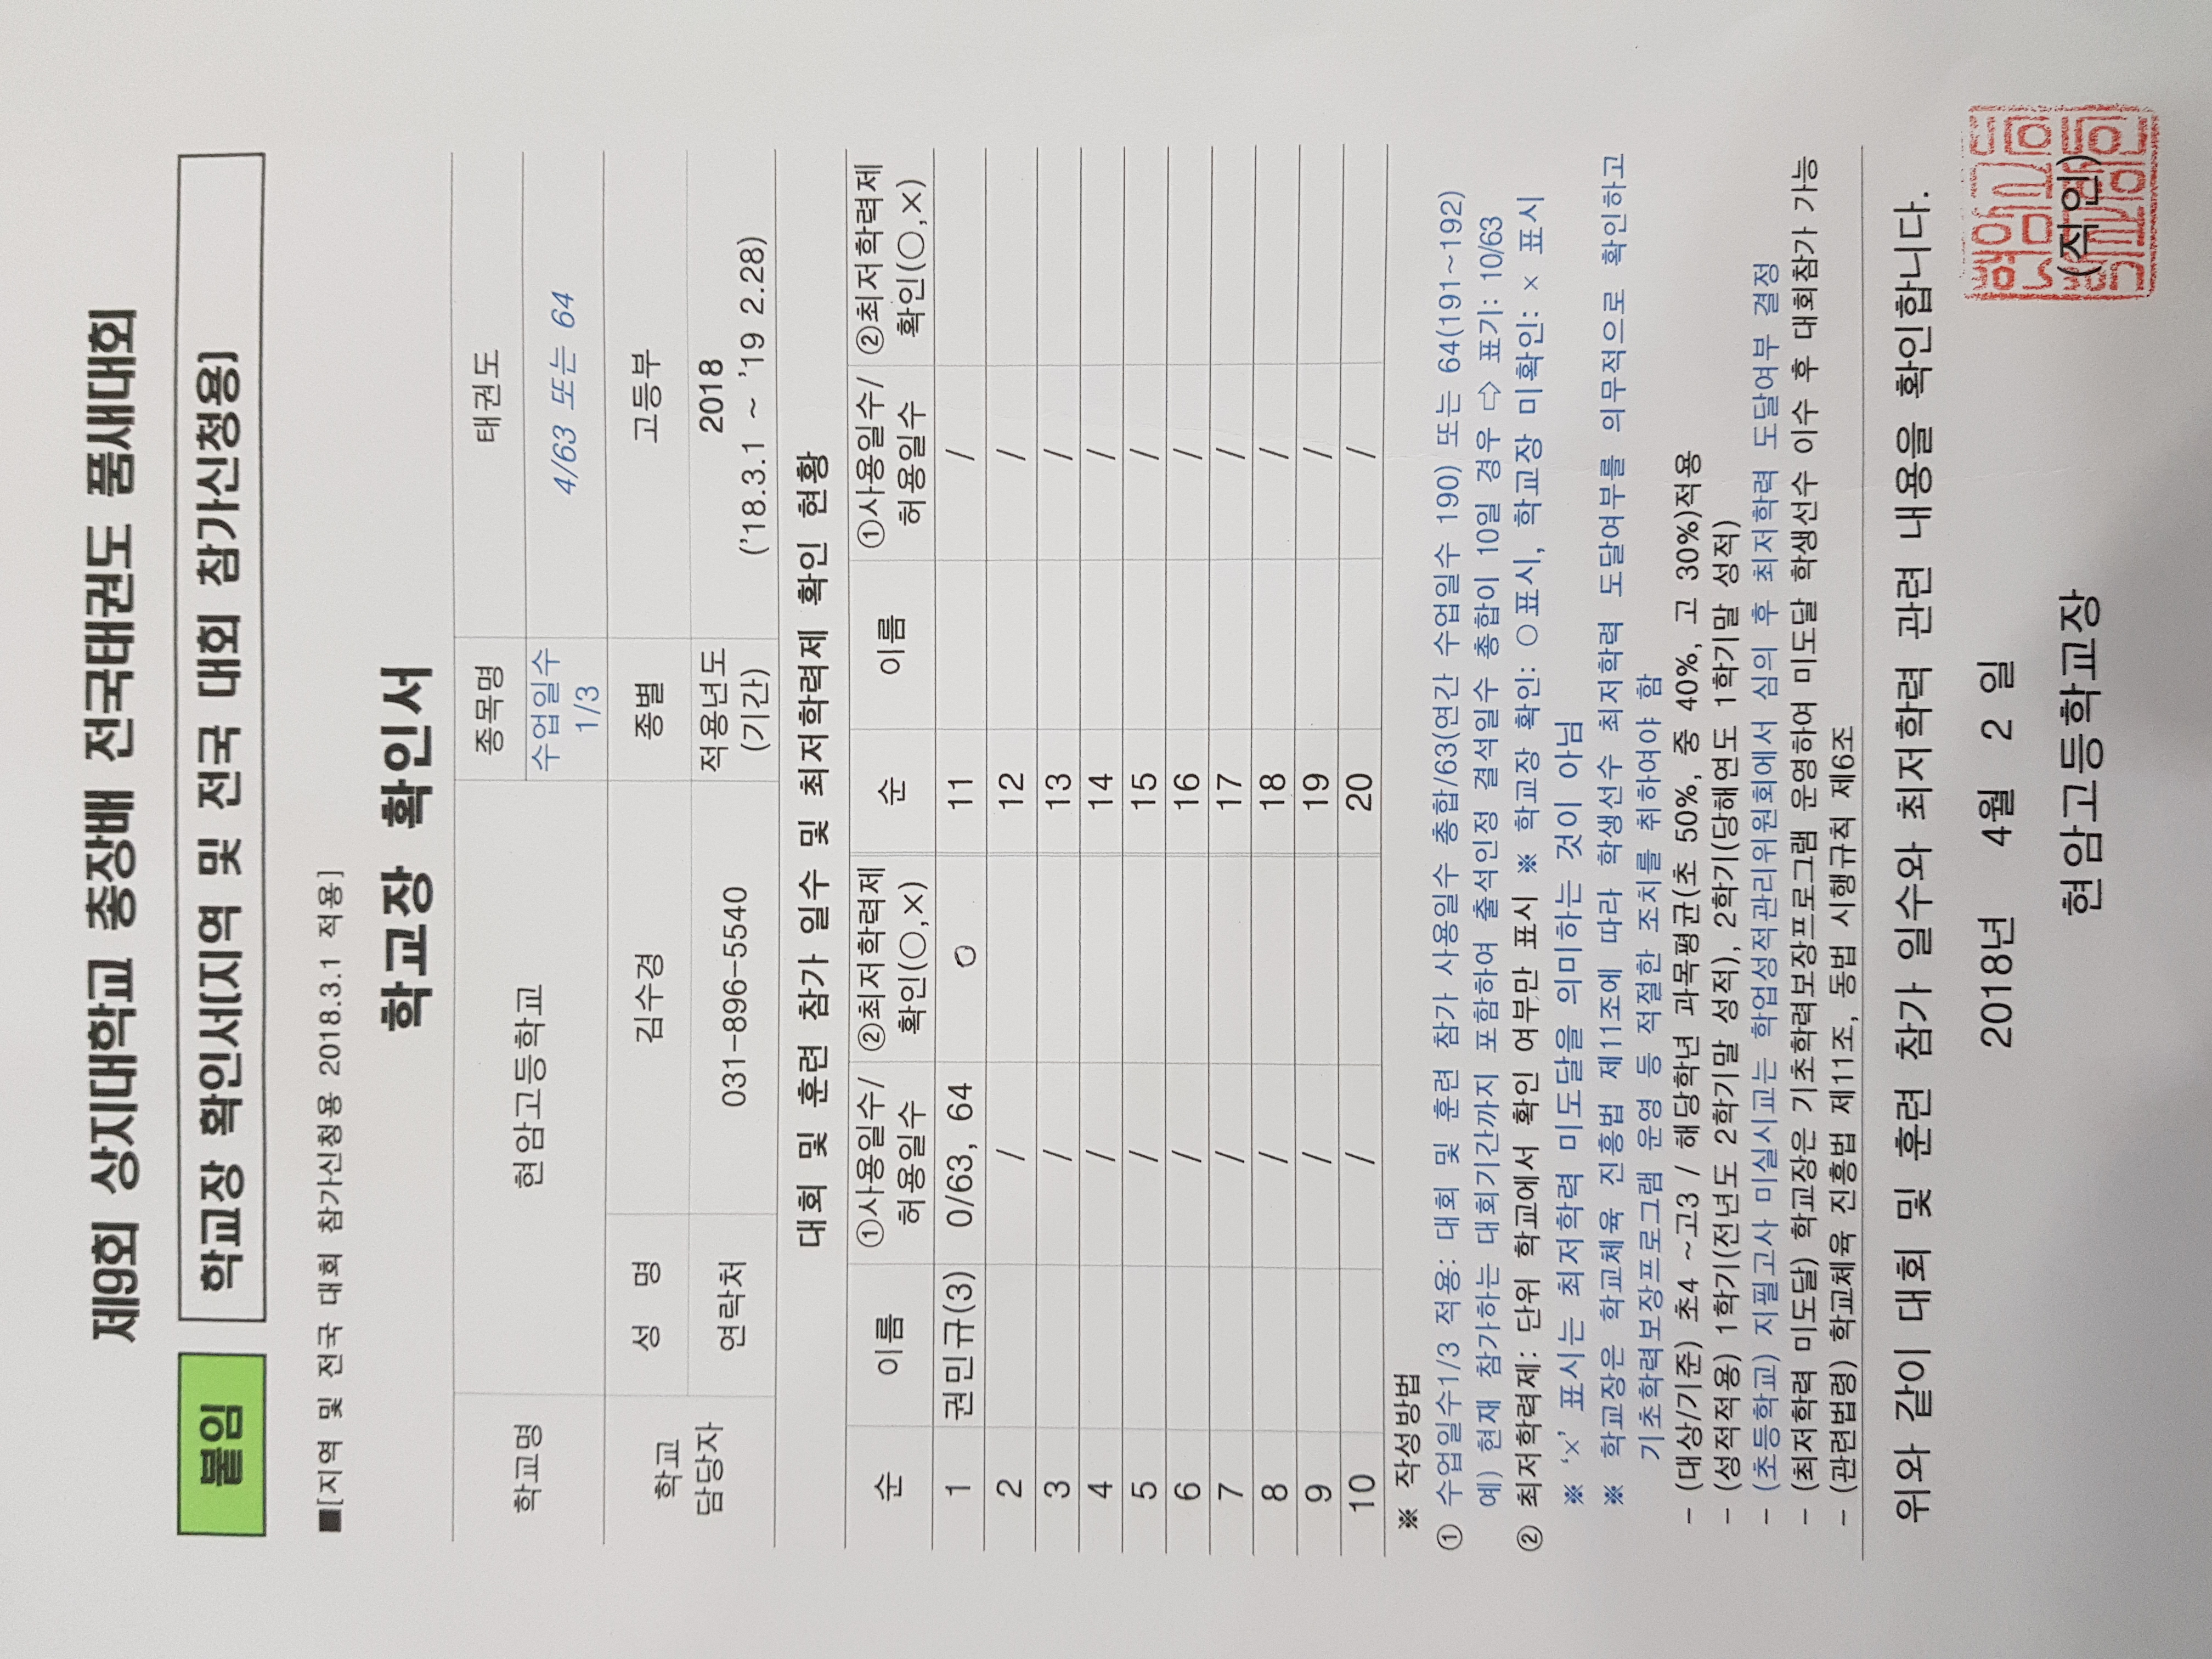 제9회 상지대학교 총장배 전국태권도 품새대회
붙임 학교장 확인서(지역 및 전국 대회 참가신청용)
■[지역 및 전국 대회 참가신청용 2018.3.1 적용]
학교장 확인서
학교명 현암고등학교 종목명 태권도
수업일수 1/3 4/63 또는 64
학교 담당자 성 명 김수경 종별 고등부
연락처 031-896-5540 적용년도 (기간) 2018 ('18.3.1 ~ '19 2.28)
대회 및 훈련 참가 일수 및 최저학력제 확인 현황
순 이름 ①사용일수/허용일수 ②최저학력제 확인(○,×) 순 이름 ①사용일수/허용일수 ②최저학력제 확인(○,×)
1 권민규(3) 0/63, 64 ○ 11 /
2 / 12 /
3 / 13 /
4 / 14 /
5 / 15 /
6 / 16 /
7 / 17 /
8 / 18 /
9 / 19 /
10 / 20 /
※ 작성방법
① 수업일수1/3 적용: 대회 및 훈련 참가 사용일수 총합/63(연간 수업일수 190) 또는 64(191~192)
예) 현재 참가하는 대회기간까지 포함하여 출석인정 결석일수 총합이 10일 경우 ⇨ 표기: 10/63
② 최저학력제: 단위 학교에서 확인 여부만 표시 ※ 학교장 확인: ○표시, 학교장 미확인: × 표시
※ '×' 표시는 최저학력 미도달을 의미하는 것이 아님
※ 학교장은 학교체육 진흥법 제11조에 따라 학생선수 최저학력 도달여부를 의무적으로 확인하고
기초학력보장프로그램 운영 등 적절한 조치를 취하여야 함
- (대상/기준) 초4 ~고3 / 해당학년 과목평균(초 50%, 중 40%, 고 30%)적용
- (성적적용) 1학기(전년도 2학기말 성적), 2학기(당해연도 1학기말 성적)
- (초등학교) 지필고사 미실시교는 학업성적관리위원회에서 심의 후 최저학력 도달여부 결정
- (최저학력 미도달) 학교장은 기초학력보장프로그램 운영하여 미도달 학생선수 이수 후 대회참가 가능
- (관련법령) 학교체육 진흥법 제11조, 동법 시행규칙 제6조
위와 같이 대회 및 훈련 참가 일수와 최저학력 관련 내용을 확인합니다.
2018년 4월 2 일
현암고등학교장 (직인)